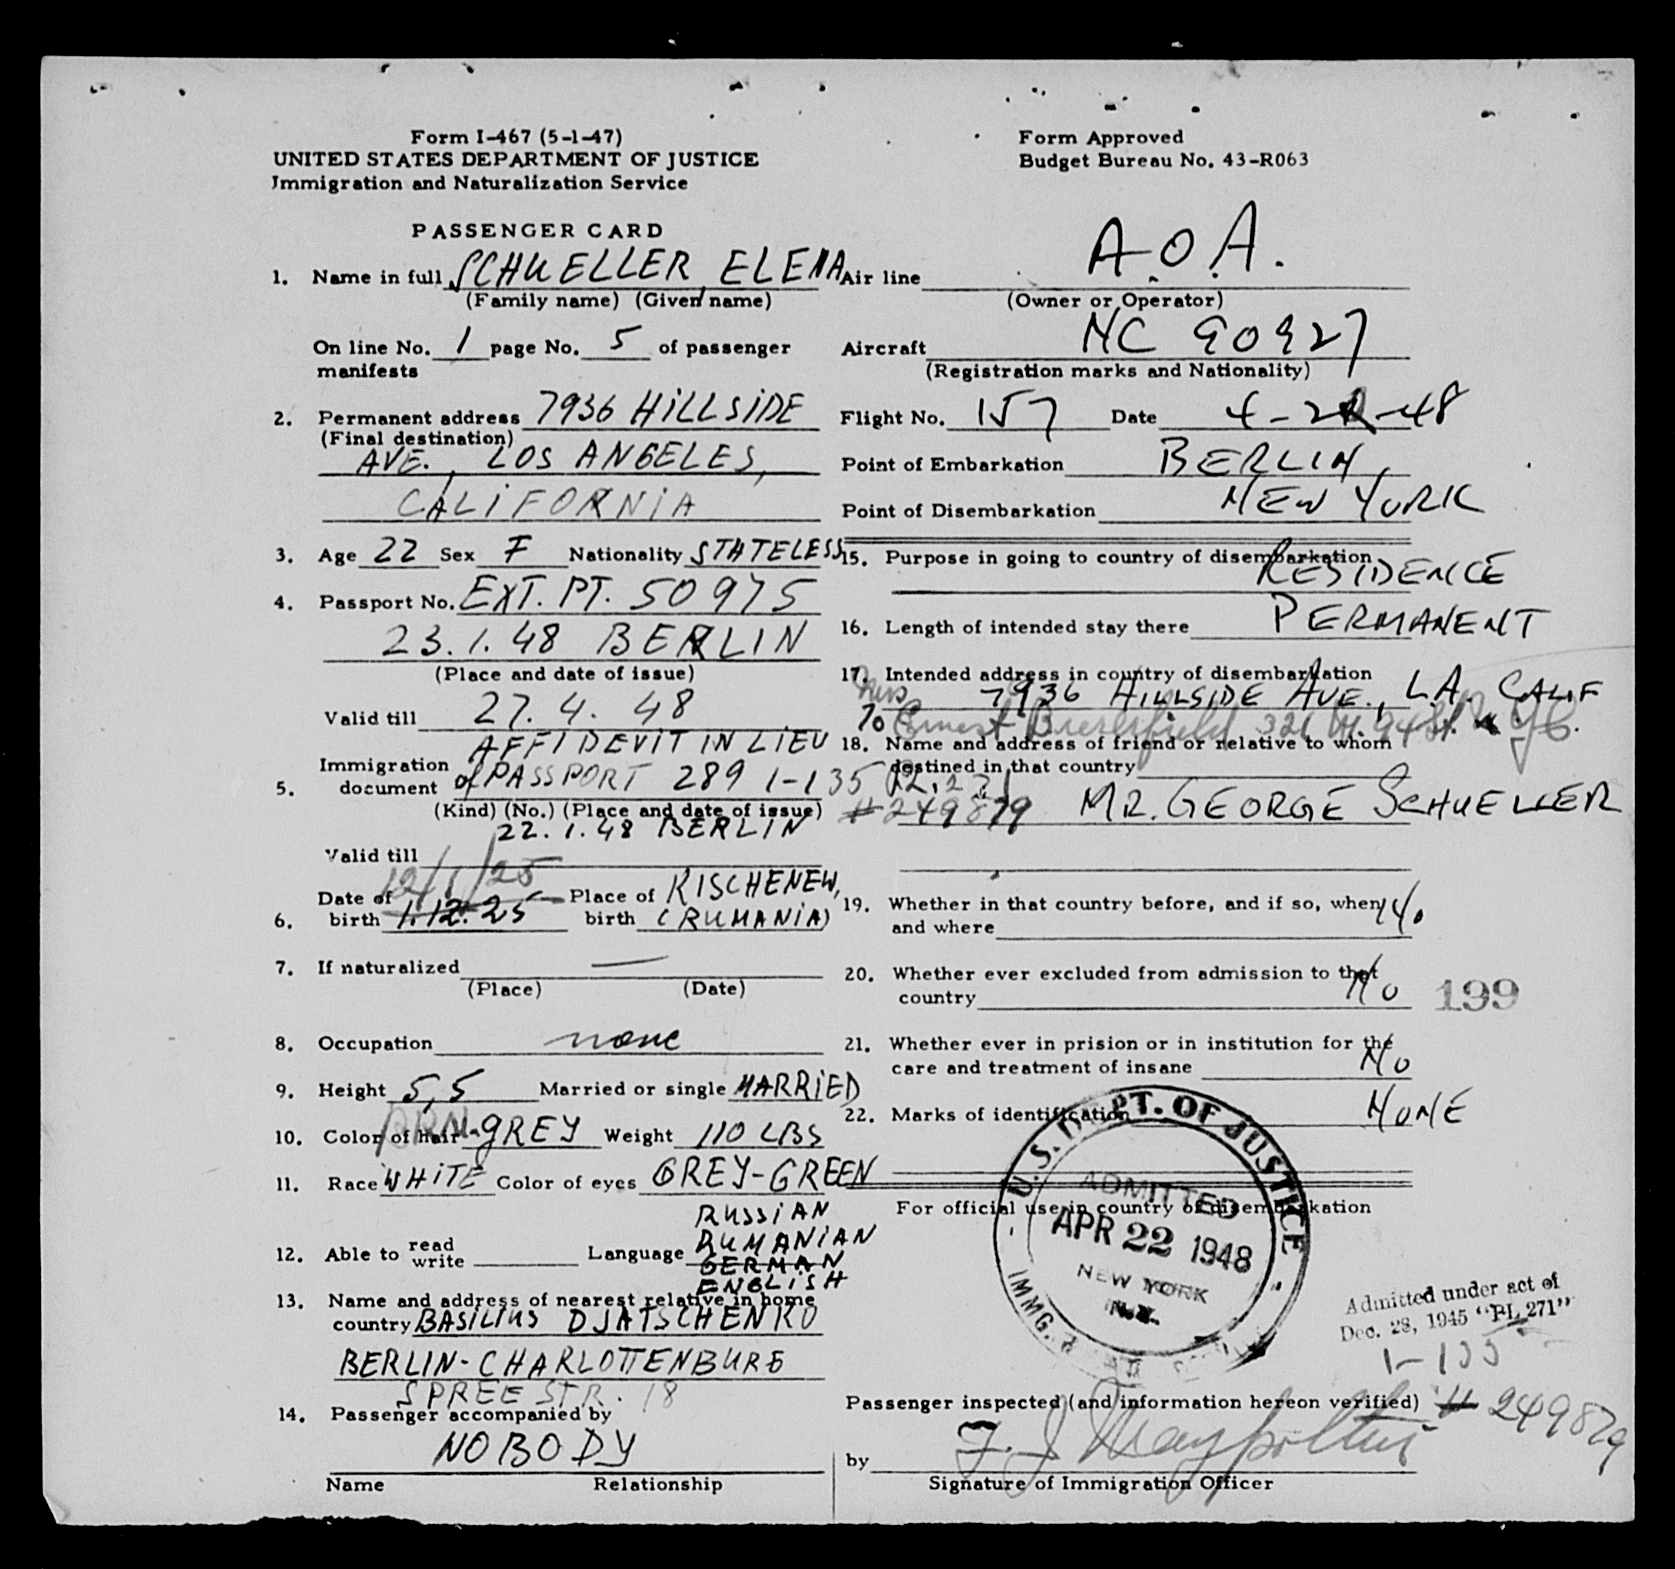 Form I-467 (5-1-47)
UNITED STATES DEPARTMENT OF JUSTICE
Immigration and Naturalization Service
Form Approved
Budget Bureau No. 43-R063
PASSENGER CARD
1. Name in full SCHUELLER, ELENA
(Family name) (Given name)
On line No. 1 page No. 5 of passenger
manifests
2. Permanent address 7936 HILLSIDE
(Final destination)
AVE., LOS ANGELES,
CALIFORNIA
3. Age 22 Sex F Nationality STATELESS
4. Passport No. EXT. PT. 50975
23.1.48 BERLIN
(Place and date of issue)
Valid till 27.4.48
AFFIDEVIT IN LIEU
Immigration
5. document of PASSPORT 289 1-135
(Kind) (No.) (Place and date of issue)
22.1.48 BERLIN
Valid till
12/1/25
Date of Place of KISCHENEW,
6. birth 1.12.25 birth (RUMANIA)
7. If naturalized —
(Place) (Date)
8. Occupation none
9. Height 5,5 Married or single MARRIED
10. Color of hair BRN-GREY Weight 110 LBS
11. Race WHITE Color of eyes GREY-GREEN
RUSSIAN
RUMANIAN
12. Able to read write Language GERMAN
ENGLISH
13. Name and address of nearest relative in home
country BASILIUS DJATSCHENKO
BERLIN-CHARLOTTENBURG
SPREE STR. 18
14. Passenger accompanied by
NOBODY
Name Relationship
Air line A.O.A.
(Owner or Operator)
Aircraft NC 90927
(Registration marks and Nationality)
Flight No. 157 Date 4-22-48
Point of Embarkation BERLIN,
Point of Disembarkation NEW YORK
15. Purpose in going to country of disembarkation
RESIDENCE
16. Length of intended stay there PERMANENT
17. Intended address in country of disembarkation
7936 HILLSIDE AVE., LA. CALIF
To Ernest 321 W. 94 St. NYC.
18. Name and address of friend or relative to whom
destined in that country
#249879 MR. GEORGE SCHUELLER
19. Whether in that country before, and if so, when
and where No
20. Whether ever excluded from admission to that
country No
199
21. Whether ever in prision or in institution for the
care and treatment of insane No
22. Marks of identification NONE
For official use in country of disembarkation
U.S. DEPT. OF JUSTICE
ADMITTED
APR 22 1948
NEW YORK
N.Y.
IMMG.
Admitted under act of
Dec. 28, 1945 "PL 271"
1-135
Passenger inspected (and information hereon verified) # 249879
by
Signature of Immigration Officer